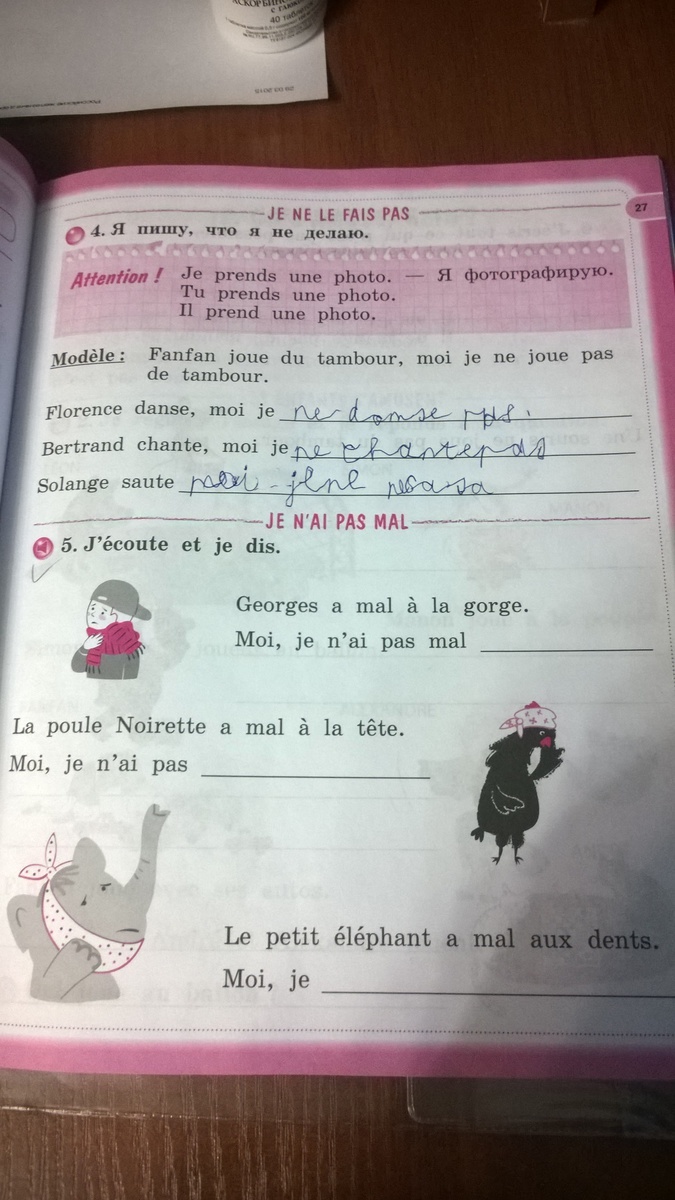 с гликозой
40 таблеток
29 03 2018
JE NE LE FAIS PAS
27
4. Я пишу, что я не делаю.
Attention ! Je prends une photo. — Я фотографирую.
Tu prends une photo.
Il prend une photo.
Modèle : Fanfan joue du tambour, moi je ne joue pas
de tambour.
Florence danse, moi je ne danse pas.
Bertrand chante, moi je ne chante pas
Solange saute moi je ne
JE N'AI PAS MAL
5. J'écoute et je dis.
Georges a mal à la gorge.
Moi, je n'ai pas mal
La poule Noirette a mal à la tête.
Moi, je n'ai pas
Le petit éléphant a mal aux dents.
Moi, je